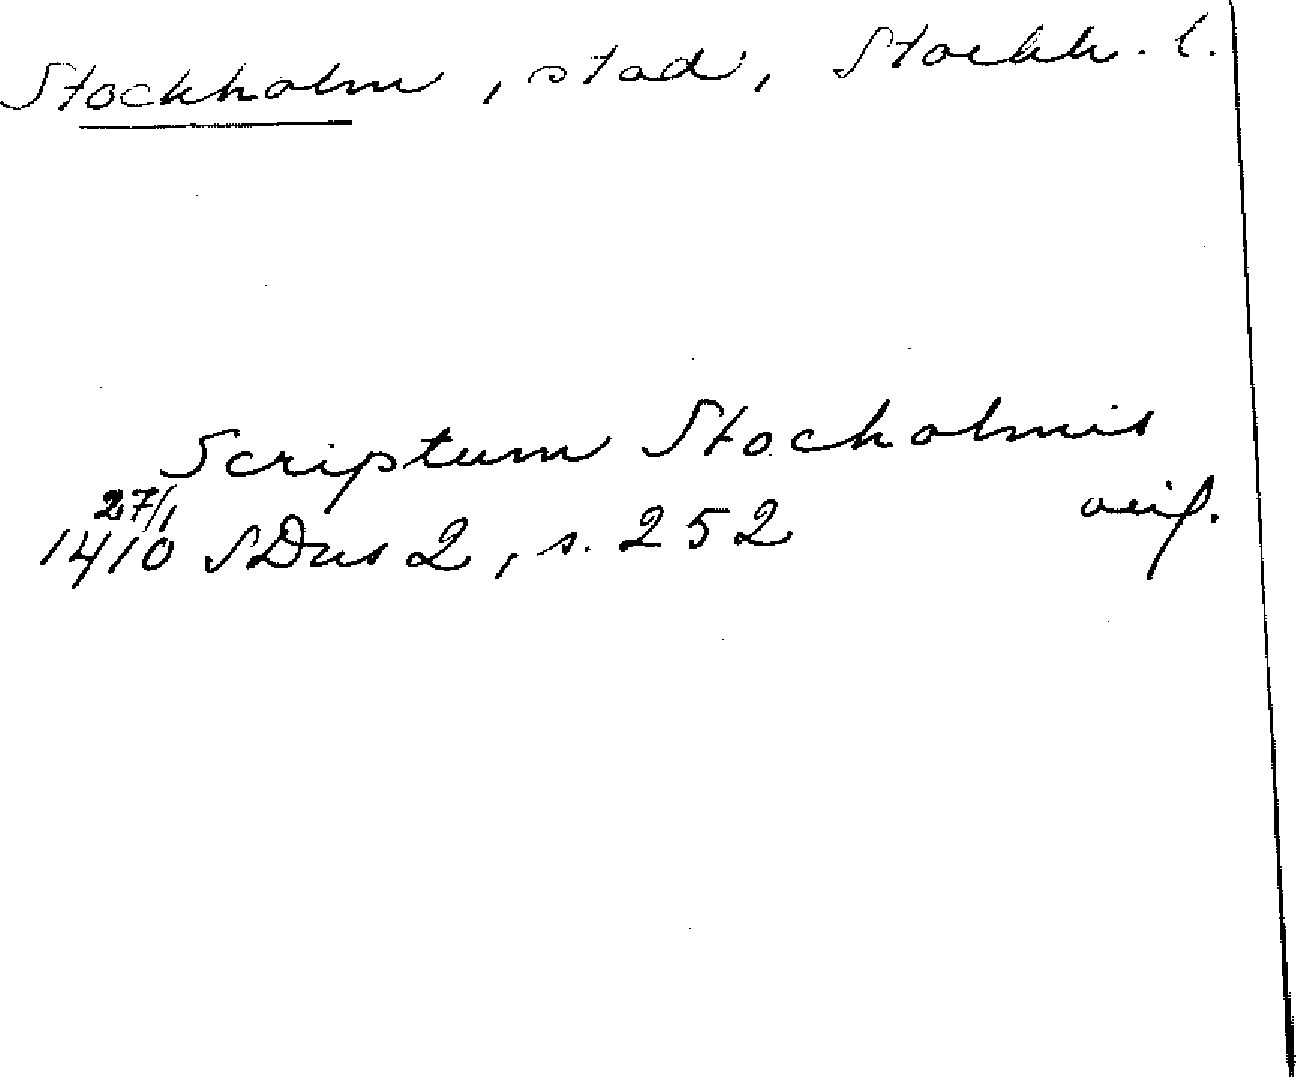 Stockholm, stad, Stockh. l.
Scriptum Stocholmis
27/1
1410 SDns 2, s. 252 avif.